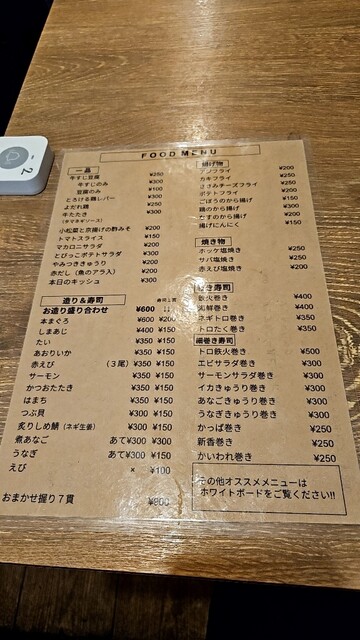 2
FOOD MENU
一品
牛すじ豆腐 ¥250
牛すじのみ ¥300
豆腐のみ ¥100
とろける鶏レバー ¥300
よだれ鶏 ¥250
牛たたき ¥300
(タマネギソース)
小松菜と京揚げの酢みそ ¥200
トマトスライス ¥150
マカロニサラダ ¥200
とびっこポテトサラダ ¥300
やみつききゅうり ¥200
赤だし(魚のアラ入) ¥200
本日のキッシュ ¥300
造り&寿司
お造り盛り合わせ ¥600
本まぐろ ¥600 ¥200
しまあじ ¥400 ¥150
たい ¥350 ¥150
あおりいか ¥350 ¥150
赤えび (3尾) ¥350 ¥150
サーモン ¥350 ¥150
かつおたたき ¥350 ¥150
はまち ¥350 ¥150
つぶ貝 ¥300 ¥150
炙りしめ鯖(ネギ生姜) ¥300 ¥150
煮あなご あて¥300 ¥300
うなぎ あて¥300 ¥150
えび × ¥100
おまかせ握り7貫 ¥900
揚げ物
アジフライ ¥200
カキフライ ¥250
ささみチーズフライ ¥250
ポテトフライ ¥150
ごぼうのから揚げ ¥200
鶏のから揚げ ¥300
なすのから揚げ ¥200
揚げにんにく ¥150
焼き物
ホッケ塩焼き ¥250
サバ塩焼き ¥250
赤えび塩焼き ¥200
巻き寿司
鉄火巻き ¥400
海鮮巻き ¥400
ネギトロ巻き ¥350
トロたく巻き ¥350
細巻き寿司
トロ鉄火巻き ¥500
エビサラダ巻き ¥300
サーモンサラダ巻き ¥300
イカきゅうり巻き ¥300
あなごきゅうり巻き ¥300
うなぎきゅうり巻き ¥300
かっぱ巻き ¥250
新香巻き ¥250
かいわれ巻き ¥250
その他オススメメニューは
ホワイトボードをご覧ください!!